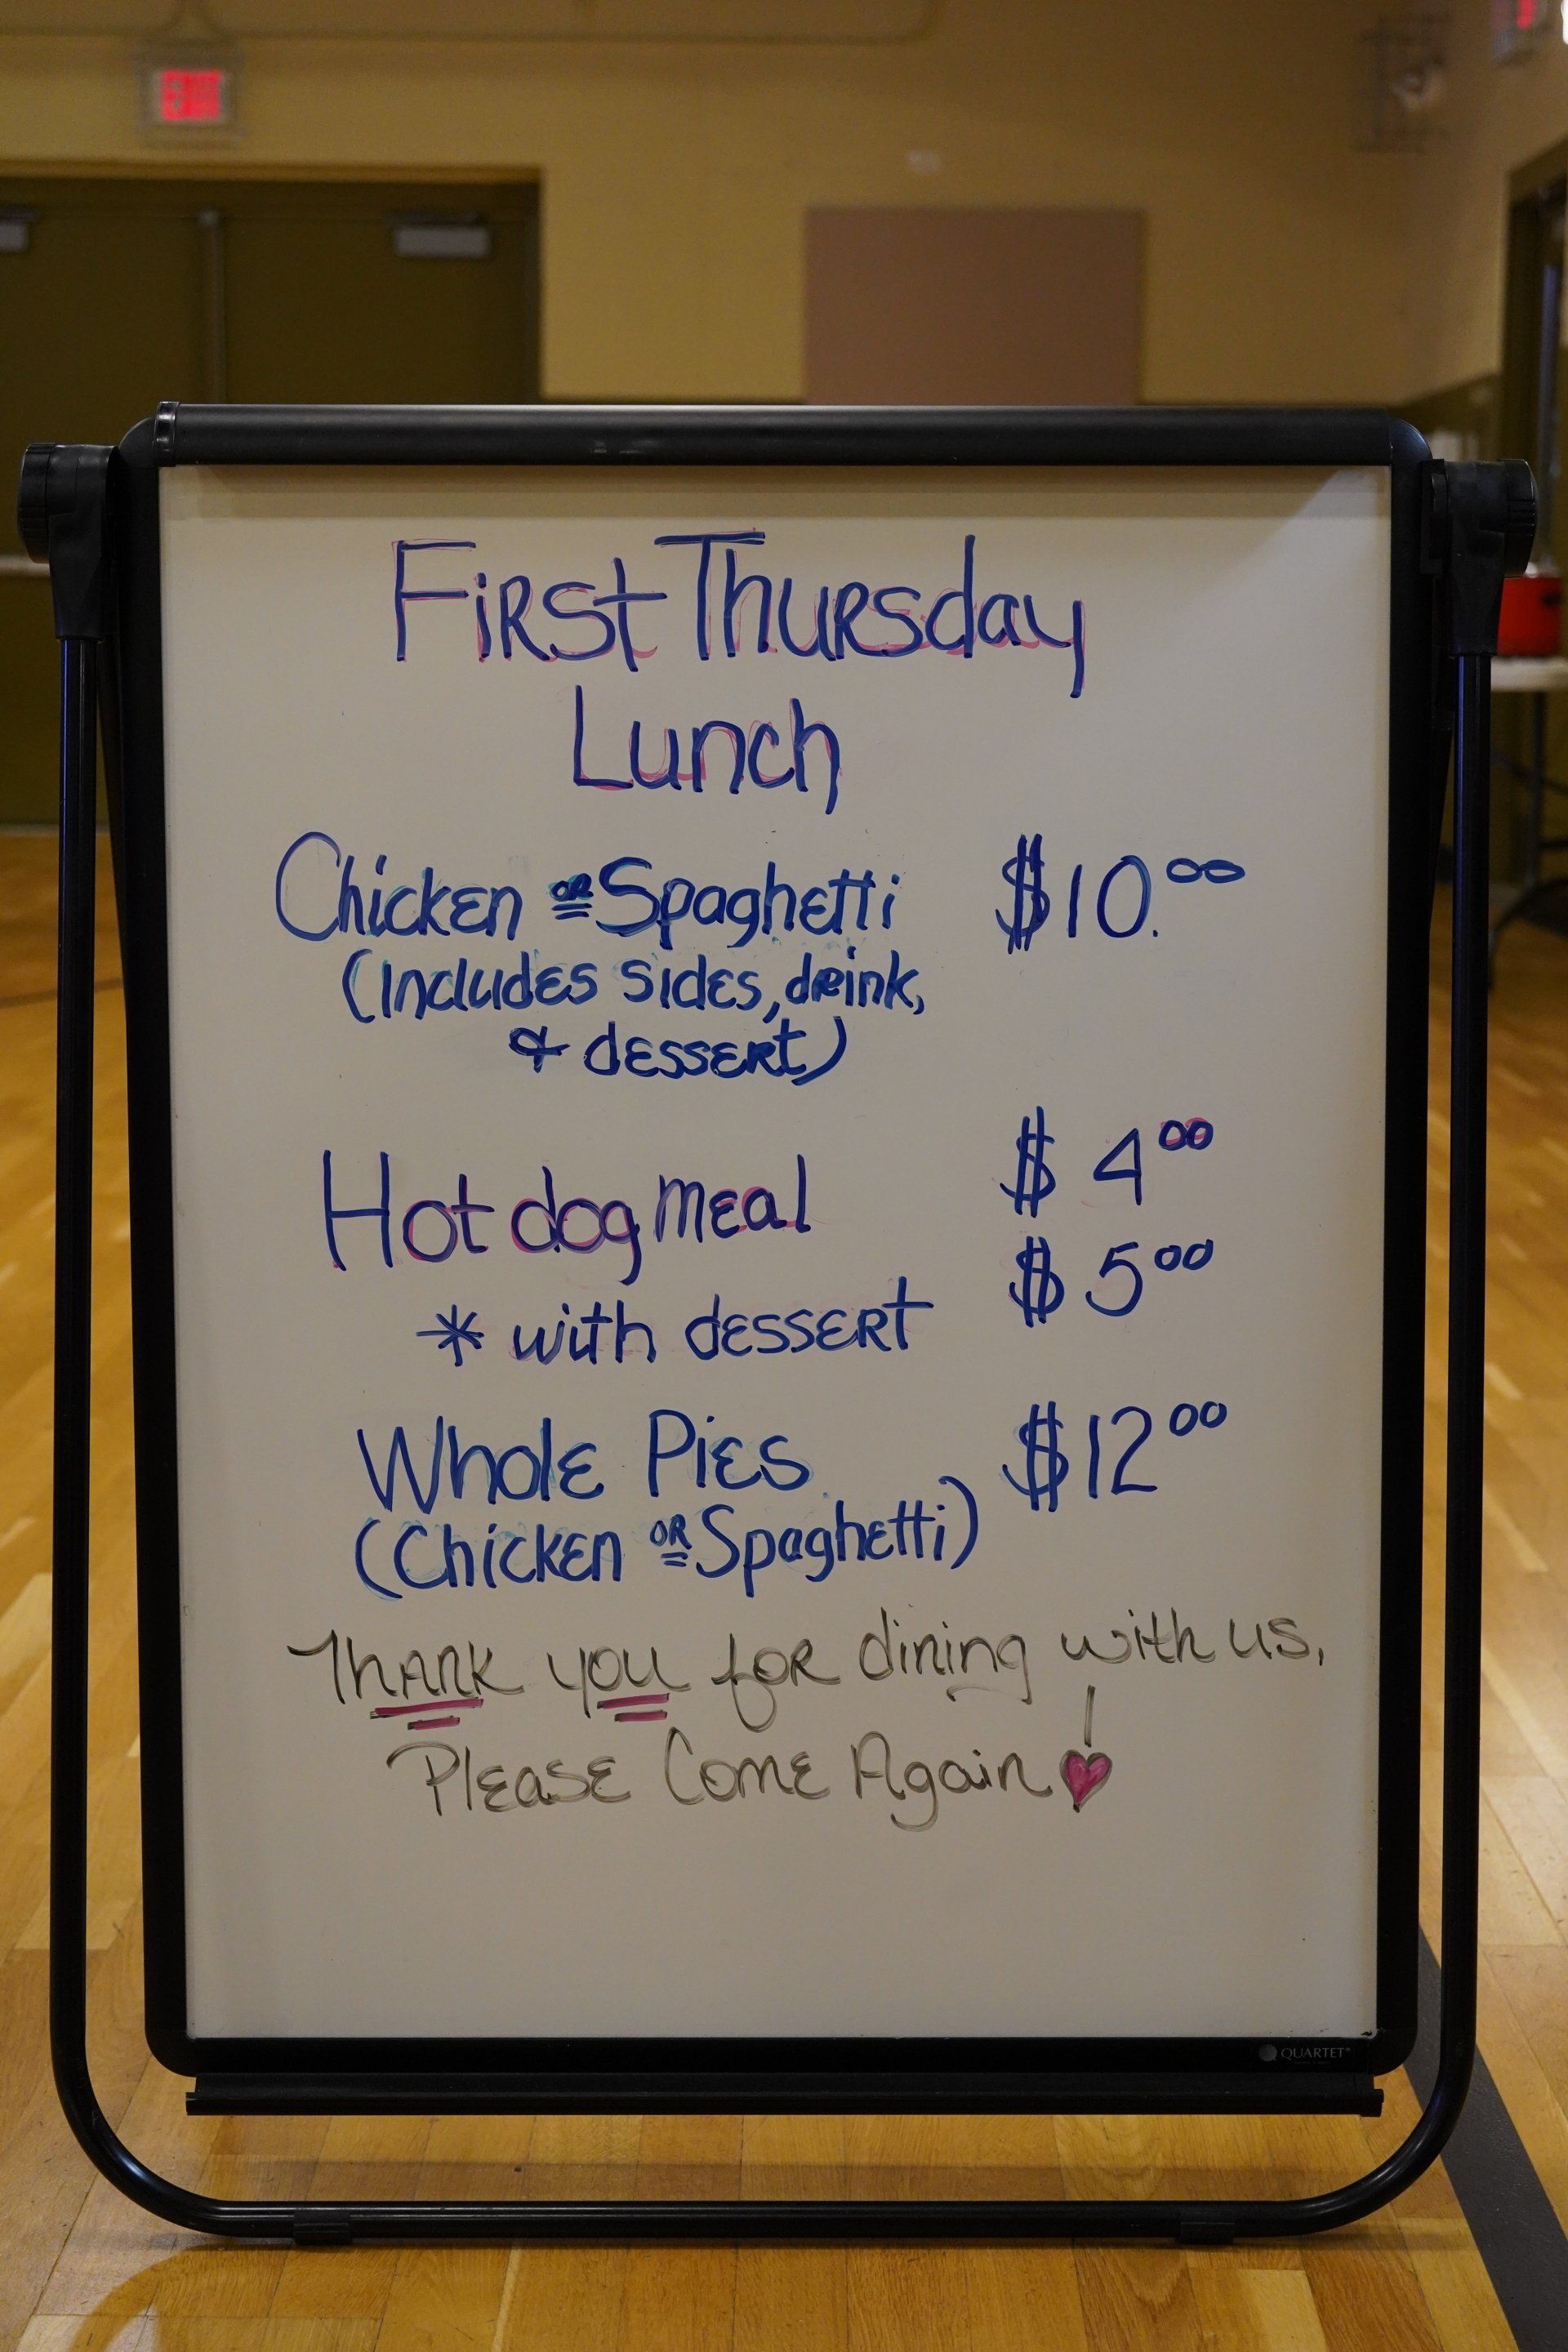 First Thursday
Lunch
Chicken or Spaghetti $10.00
(Includes sides, drink,
& dessert)
Hot dog meal $4 00
* with dessert $5 00
Whole Pies $12 00
(Chicken or Spaghetti)
Thank you for dining with us,
Please Come Again
QUARTET